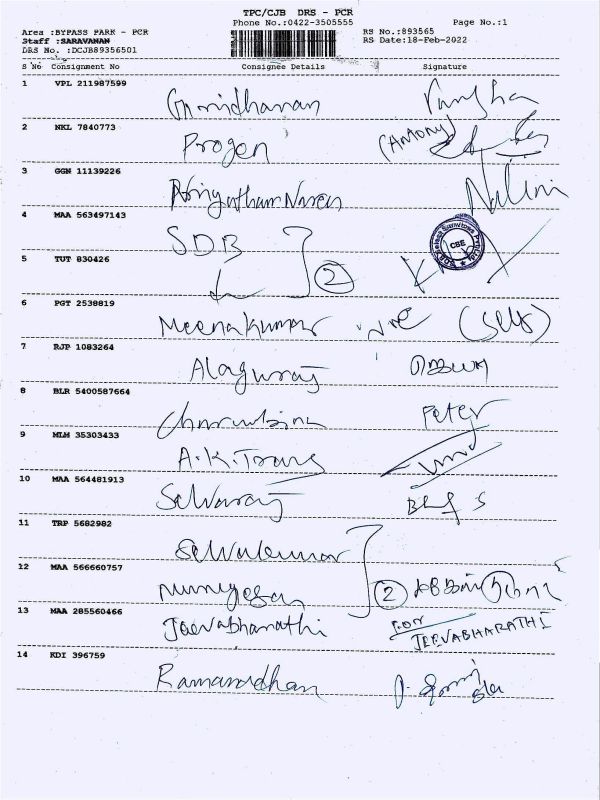 TPC/CJB DRS - PCR
Phone No.:0422-3505555
Page No.:1
Area :BYPASS PARK - PCR
RS No.:893565
Staff :SARAVANAN
RS Date:18-Feb-2022
DRS No. :DCJB89356501
S No Consignment No Consignee Details Signature
1 VPL 211987599
2 NKL 7840773 Progen (Antony)
3 GGN 11139226 Nalini
4 MAA 563497143 SDB
CBE
5 TUT 830426 2
6 PGT 2538819 Meenakumar (Self)
7 RJP 1083264 Alaguraj
8 BLR 5400587664 Peter
9 MLM 35303433 A.K.Trans
10 MAA 564481913 Selvaraj
11 TRP 5682982 Selvakumar
12 MAA 566660757 Murugesan 2
13 MAA 285560466 Jeevabharathi For
JEEVABHARATHI
14 KDI 396759